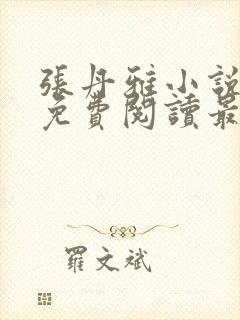 張丹雅小說
免費閱讀最
羅文斌